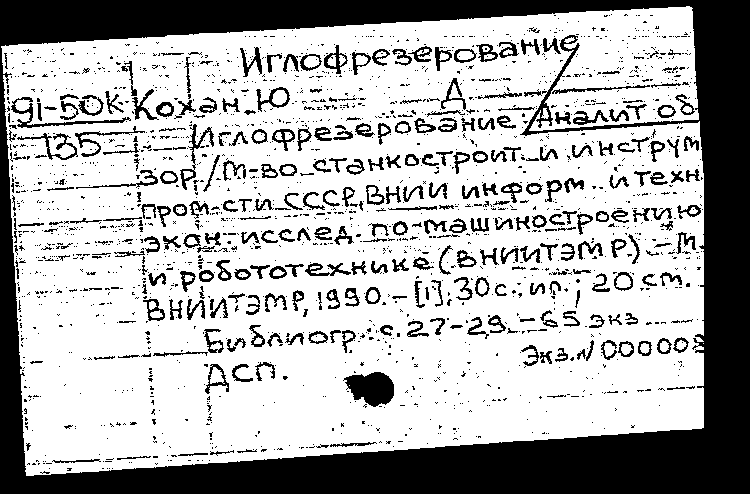 Иглофрезерование
91-50К Кохан Ю Д
135 Иглофрезерование: Аналит об
зор / М-во станкостроит. и инструм
пром-сти СССР, ВНИИ информ. и техн
экон. исслед. по машиностроению
и робототехнике (ВНИИТЭМР). – М.
ВНИИТЭМР, 1990. – [1], 30 с.: ил.; 20 см.
Библиогр.: с. 27-29. – 65 экз
ДСП. Экз. N 000008